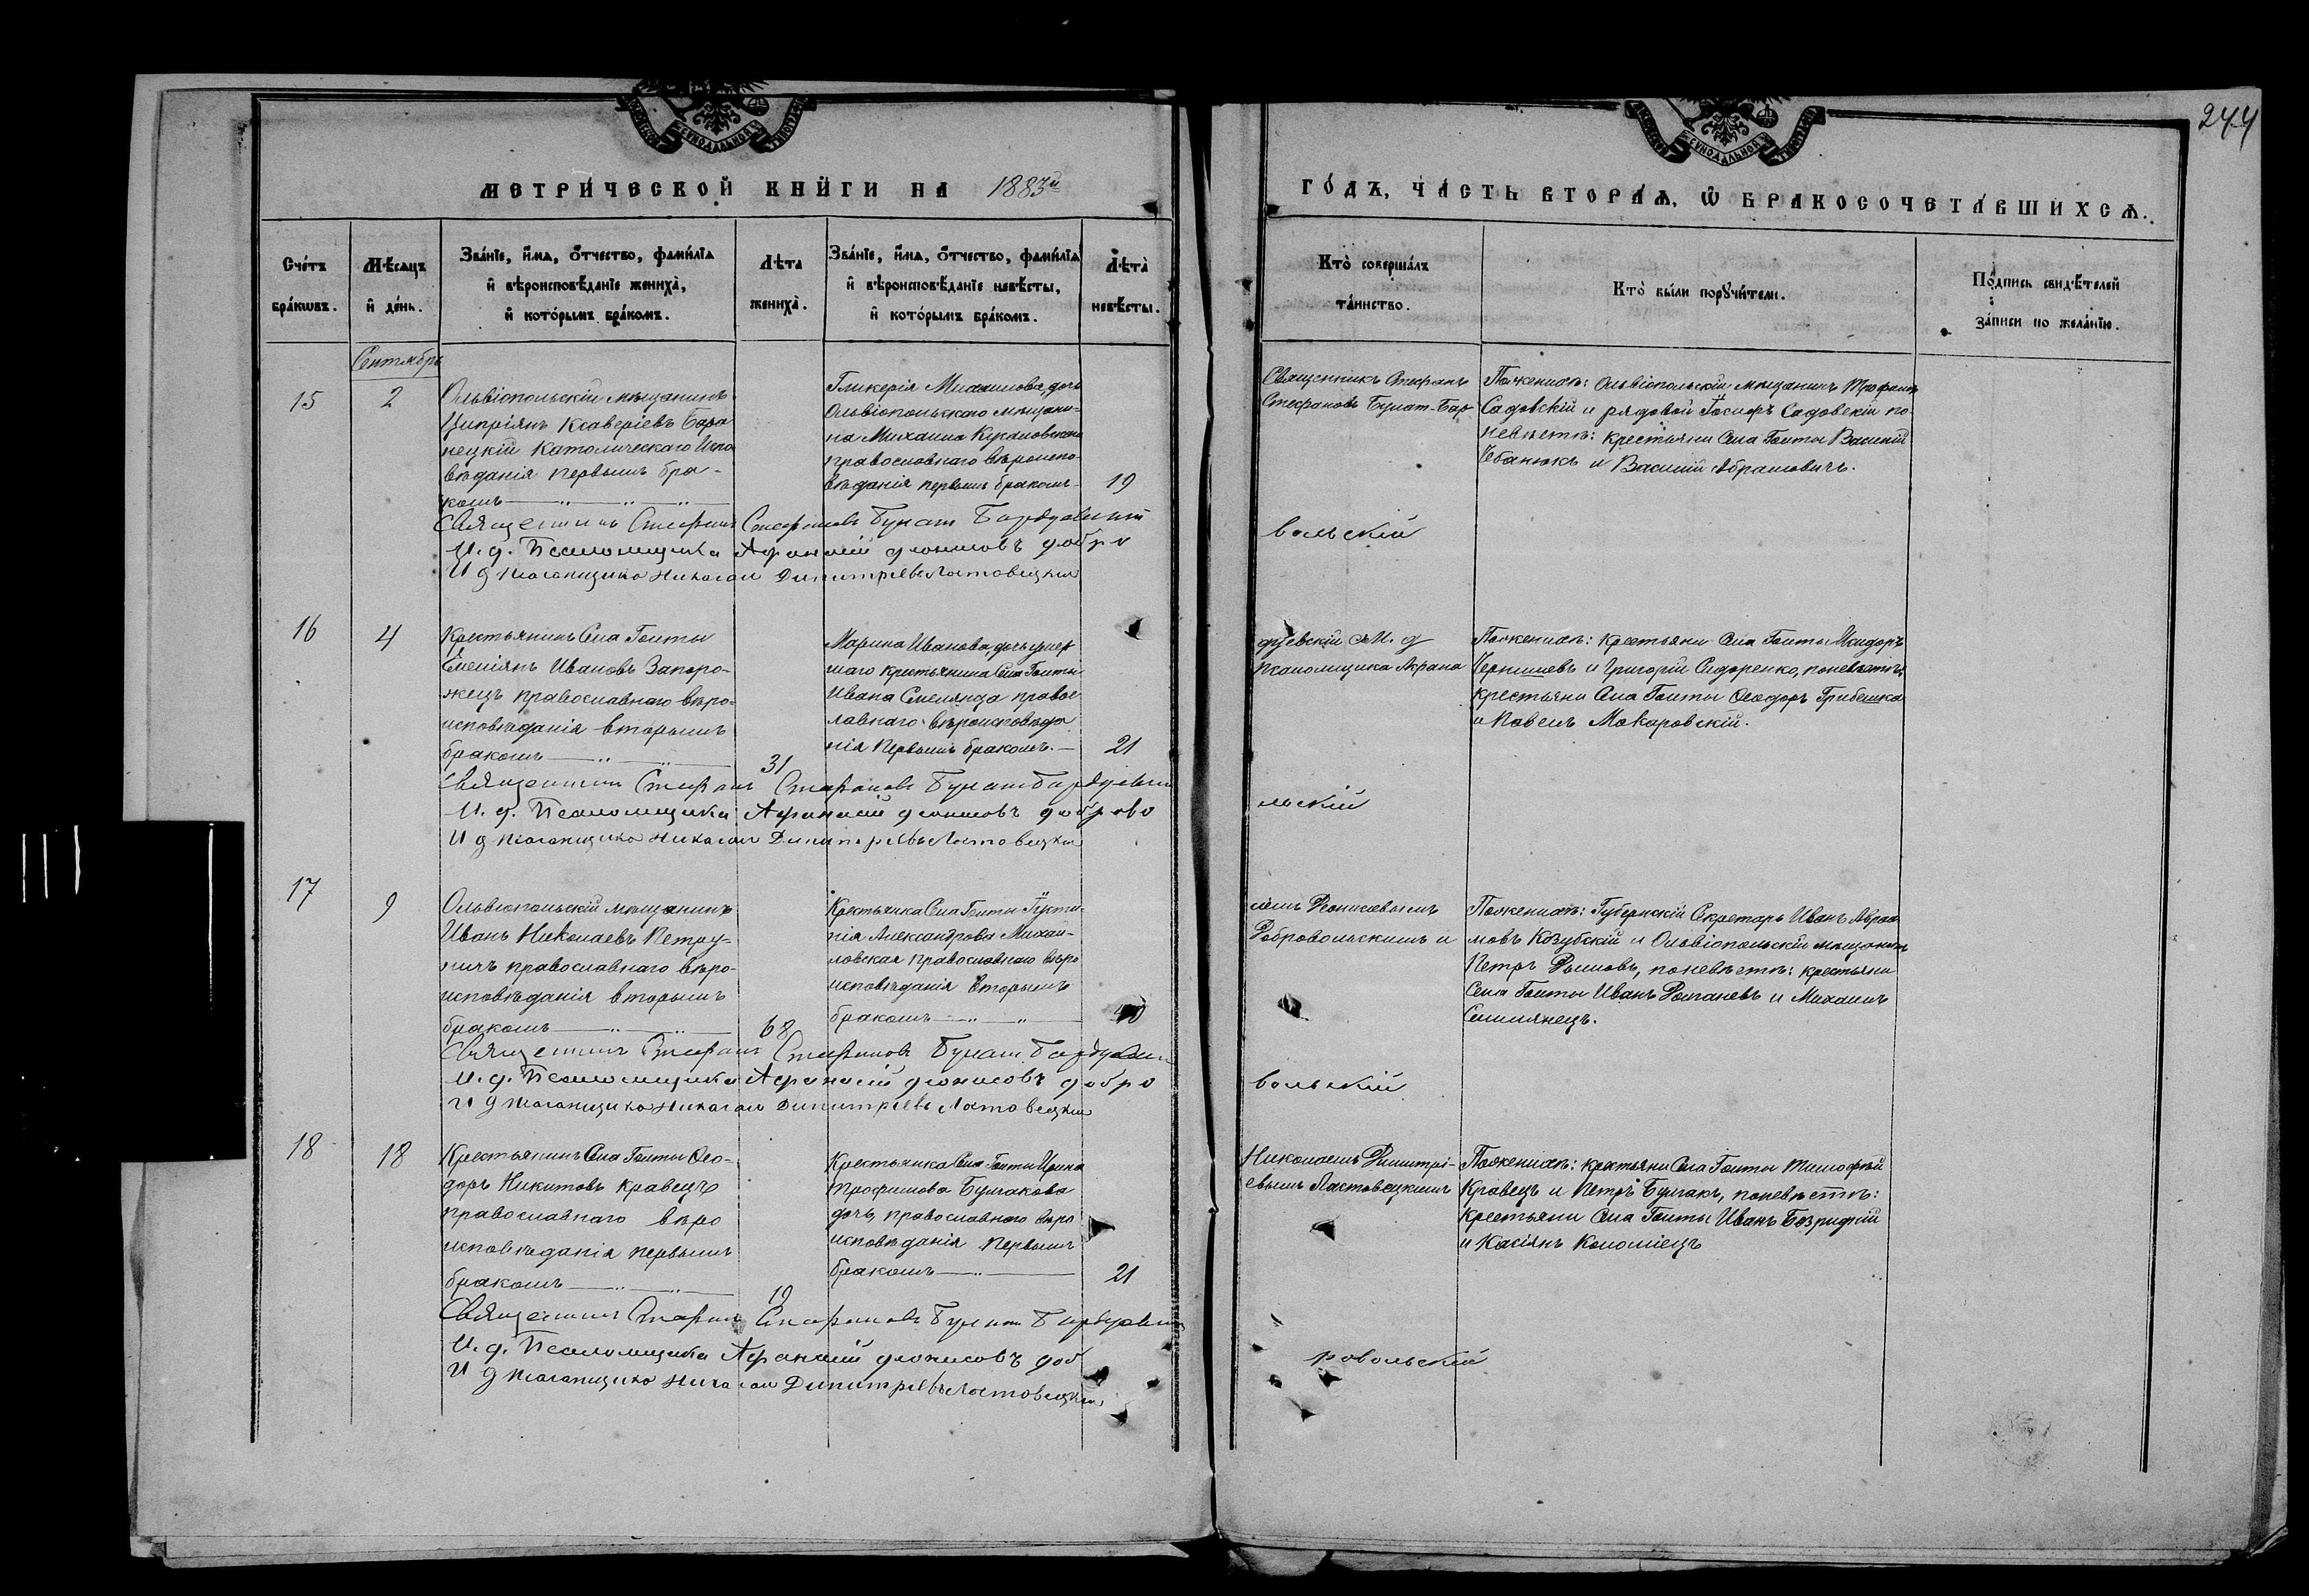 244
СУНОДАЛЬНОЙ
СУНОДАЛЬНОЙ
МЕТРИЧЕСКОЙ КНИГИ НА 1883й
ГОДЪ, ЧАСТЬ ВТОРАѦ, Ѡ БРАКОСОЧЕТАВШИХСѦ.
Счетъ бракѡвъ.
Мѣсяцъ и день.
Званіе, имя, отчество, фамилїа
и вѣроисповѣданїе жениха,
и которымъ бракомъ.
Лѣта жениха.
Званіе, имя, отчество, фамилїа
и вѣроисповѣданїе невѣсты,
и которымъ бракомъ.
Лѣта невѣсты.
Кто совершалъ таинство.
Кто были поручители.
Подпись свидѣтелей записи по желанїю.
Сентябрь
15
2
Ольвіопольскій мѣщанинъ
Ципріянъ Ксаверіевъ Бара
нецкій Католическаго Испо
вѣданія первымъ бра-
комъ
Гликерія Михаилова, дочь
Ольвіопольскаго мѣщани-
на Михаила
православнаго вѣроиспо-
вѣданія первымъ бракомъ
19
Священникъ Стефанъ
Стефановъ Булат-Бар
Поженихѣ: Ольвіопольскій мѣщанинъ Трофимъ
Садовскій и рядовой Іосифъ Садовскій по
невѣстѣ: крестьяни Села Голты Василій
Чебанюкъ и Василій Абрамовичъ.
Священникъ Стефанъ Стефановъ Булат Бардуевскій
И. д. Псаломщика Афанасій Діонисовъ Добро
вольскій
И д псаломщика Николай Димитріевъ Ластовецкій
16
4
Крестьянинъ Села Голты
Емеліянъ Ивановъ Запоро-
жецъ православнаго вѣро-
исповѣданія вторымъ
бракомъ
31
Марина Иванова, дочь умер
шаго крестьянина Села Голты
Ивана православ
лавнаго вѣроисповѣда
нія первымъ бракомъ.
21
дуевскій И. д
псаломщика Афана
Поженихѣ: крестьяни Села Голты
и Григорій Сидоренко, поневѣстѣ:
крестьяни Села Голты Феодоръ Грибешка
и Павелъ Макаровскій.
Священникъ Стефанъ Стефановъ Булат Бардуевскій
И. д. Псаломщика Афанасій Діонисовъ Доброво
льскій
И д псаломщика Николай Димитріевъ Ластовецкій
17
9
Ольвіопольскій мѣщанинъ
Иванъ Николаевъ Петру-
ничъ православнаго вѣро-
исповѣданія вторымъ
бракомъ
68
Крестьянка Села Голты Іусти-
нія Александрова Михай-
ловская православнаго вѣро
исповѣданія вторымъ
бракомъ
40
сіемъ Діонисовымъ
Добровольскимъ и
Поженихѣ: Губернскій Секретарь Иванъ Абра-
мовъ Козубскій и Ольвіопольскій мѣщанинъ
Петръ поневѣстѣ: крестьяни
Села Голты Иванъ и Михаилъ
Священникъ Стефанъ Стефановъ Булат Бардуевскій
И. д. Псаломщика Афанасій Діонисовъ Добро
вольскій
И д псаломщика Николай Димитріевъ Ластовецкій
18
18
Крестьянинъ Села Голты Фео-
доръ Никитовъ Кравецъ
православнаго вѣро
исповѣданія первымъ
бракомъ
19
Крестьянка Села Голты Ирина
Трофимова Булгакова
дочь, православнаго вѣро
исповѣданія первымъ
бракомъ
21
Николаемъ Димитрі-
евымъ Ластовецкимъ
Поженихѣ: крестьяни Села Голты Тимофѣй
Кравецъ и Петръ Булгакъ, поневѣстѣ:
крестьяни Села Голты Иванъ Безридкій
и Касіянъ Коломіецъ
Священникъ Стефанъ Стефановъ Булат Бардуевскій
И. д. Псаломщика Афанасій Діонисовъ Доб
ровольскій
И д псаломщика Николай Димитріевъ Ластовецкій